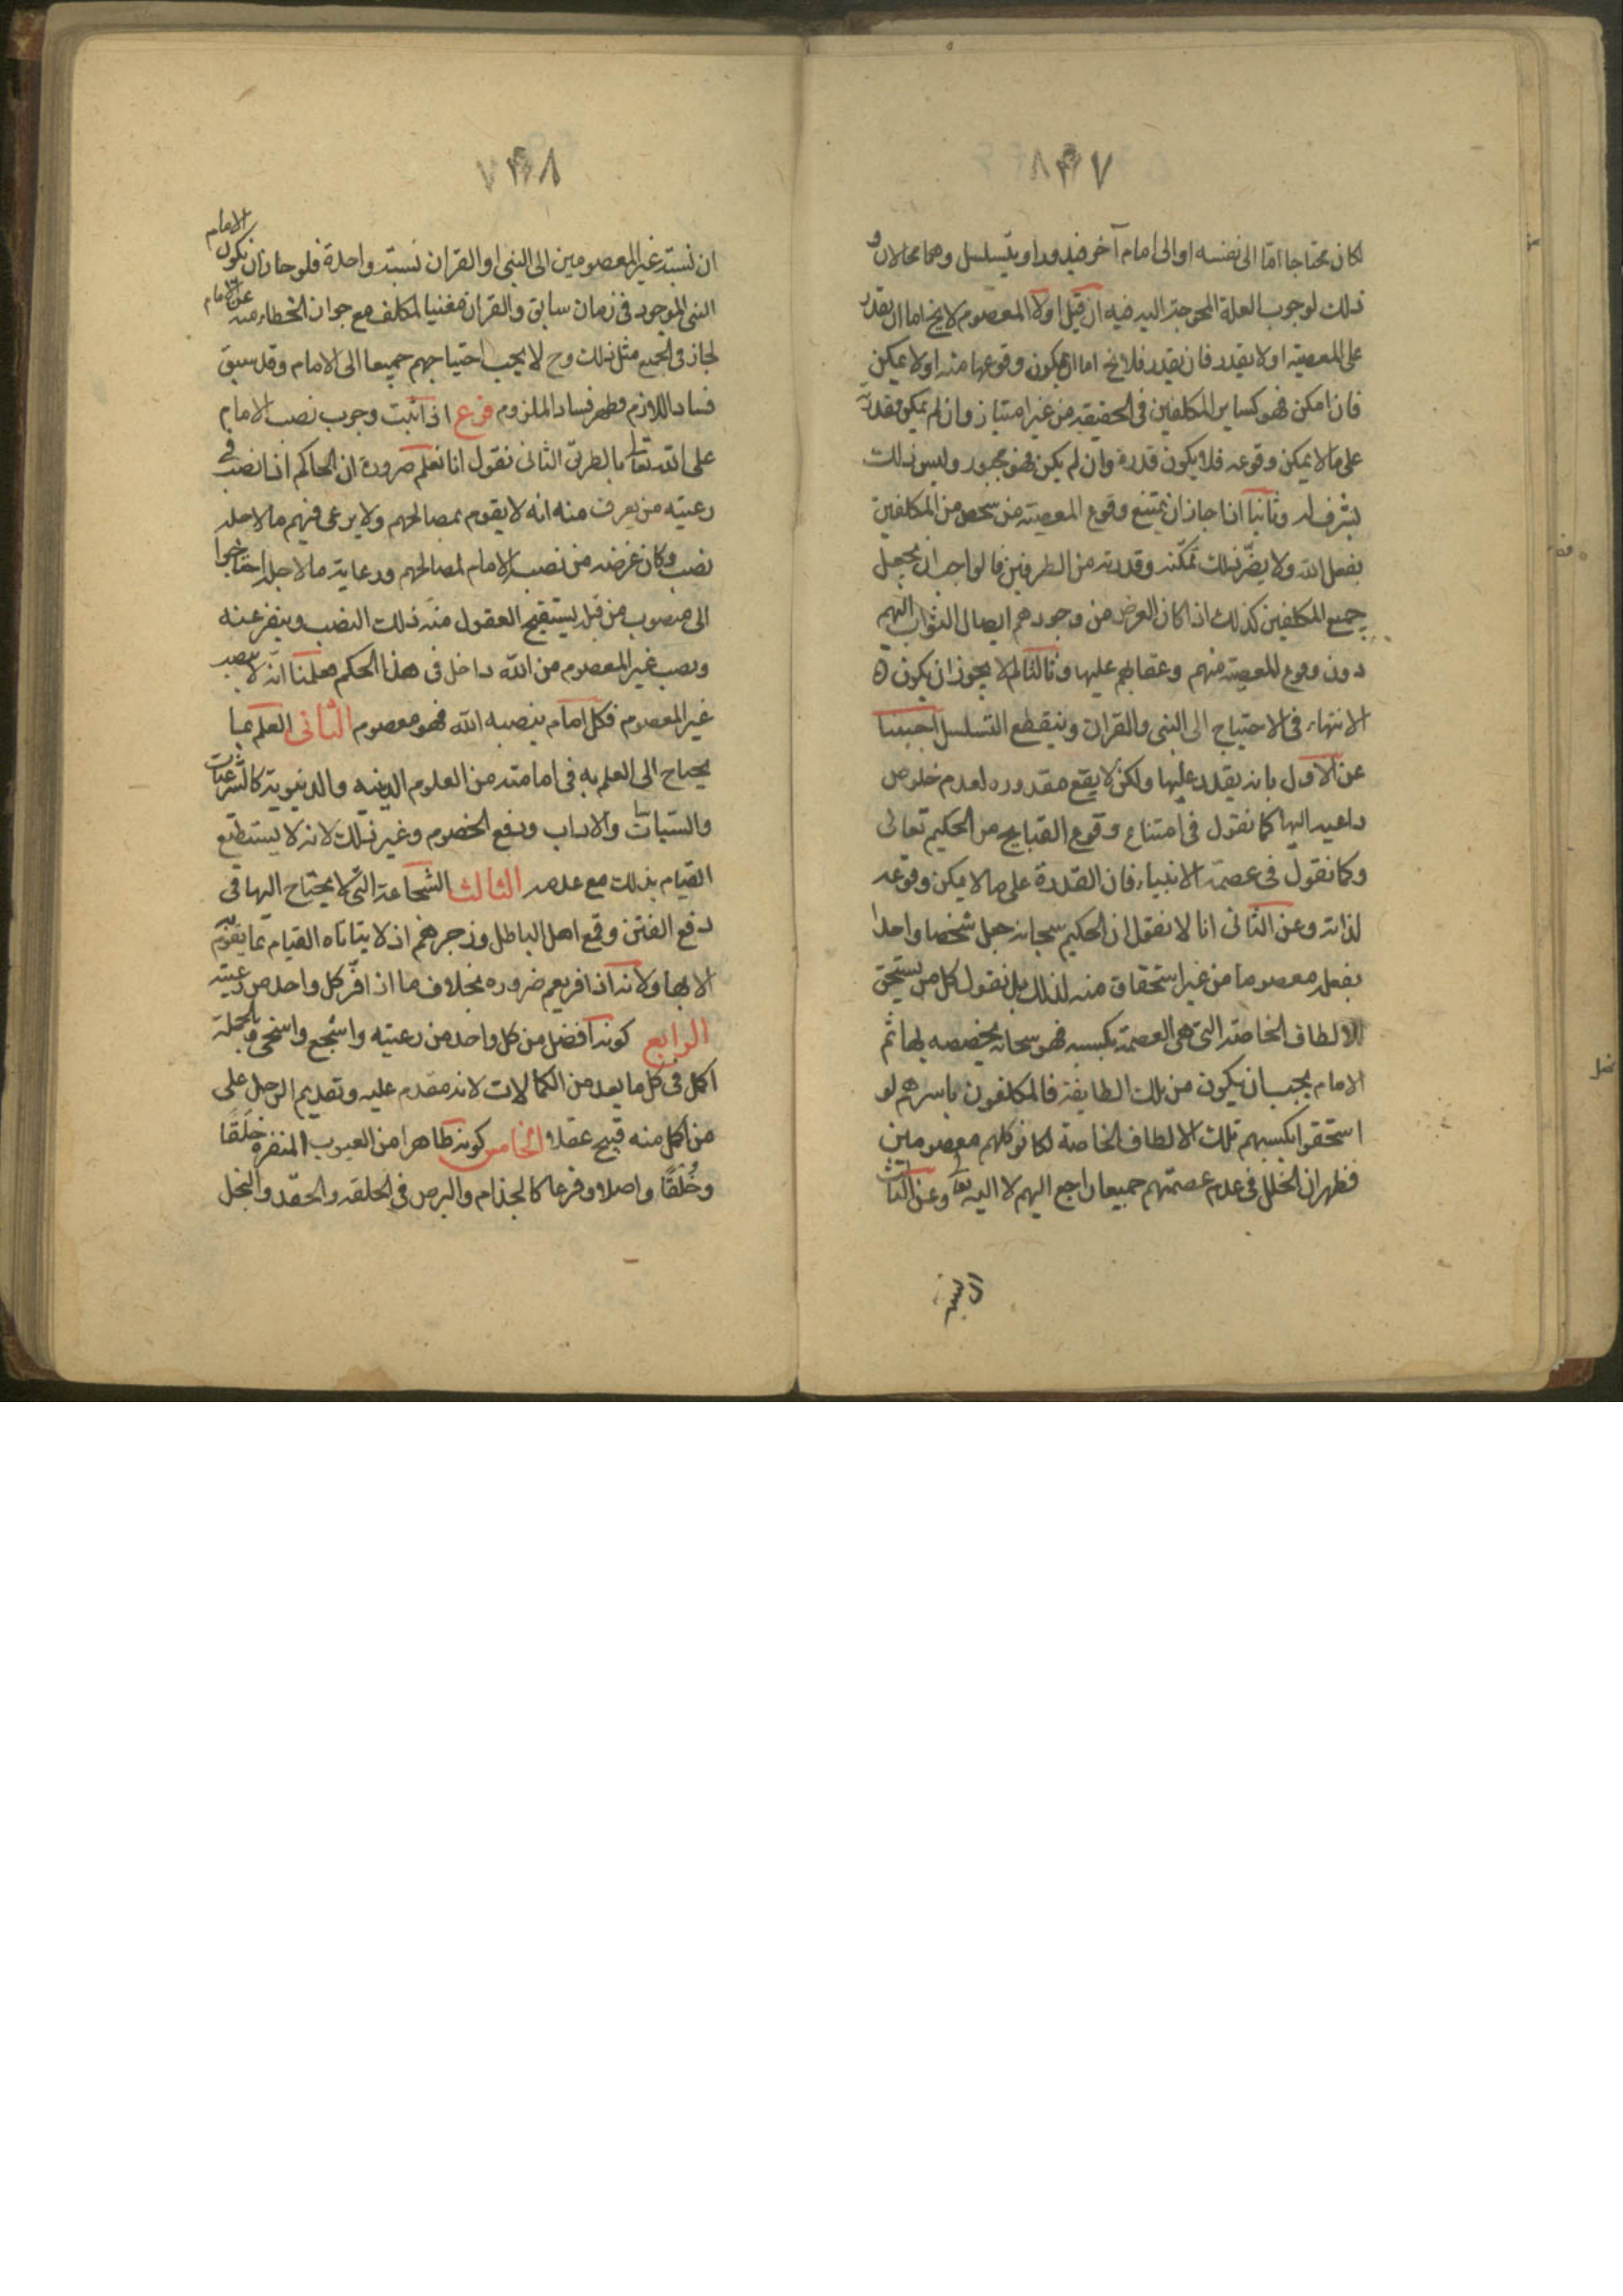 ٨٣٧
لكان محتاجا اما الى نفسه او الى امام آخر فيدور او يتسلسل وهما محالان و
ذلك لوجوب العلة المحوجة اليه فيه ان قيل اولا المعصوم لا يخ اما ان يقدر
على المعصية او لا يقدر فان يقدر فلا يخ اما ان يكون وقوعها منه او لا يمكن
فان امكن فهو كساير المكلفين في الحقيقه من غير امتياز وان لم يمكن فقدرته
على ما لا يمكن وقوعه فلا يكون قدرة وان لم يكن فهو مجبور وليس ذلك
بشرف له وثانيا اذا جاز ان يمتنع وقوع المعصية من شخص من المكلفين
بفعل الله ولا يضر ذلك تمكنه وقدرته من الطرفين فالواجب ان يجعل
جميع المكلفين كذلك اذ كان الغرض من وجودهم ايصال الثواب اليهم
دون وقوع المعصية منهم وعقابهم عليها وثالثا لم لا يجوز ان يكون
الانتهاء في الاحتياج الى النبي والقران وينقطع التسلسل اجيبنا
عن الاول بانه يقدر عليها ولكن لا يقع مقدوره لعدم خلوص
داعيه اليها كما نقول في امتناع وقوع القبايح من الحكيم تعالى
وكما نقول في عصمة الانبياء فان القدرة على ما لا يمكن وقوعه
لذاته وعن الثانى انا لا نقول ان الحكيم سبحانه جعل شخصا واحدا
بفعله معصوما من غير استحقاق منه لذلك بل نقول كل من يستحق
للالطاف الخاصة التى هى العصمة بكسبه فهو سبحانه يخصصه بها ثم
الامام يجب ان يكون من تلك الطايفة فالمكلفون باسرهم لو
استحقوا بكسبهم تلك الالطاف الخاصة لكانوا كلهم معصومين
فظهر ان الخلل في عدم عصمتهم جميعا راجع اليهم لا اليه تعا وعن الثالث
٨٣٨
ان نسبة غير المعصومين الى النبي او القران نسبة واحدة فلو جاز ان يكون الامام
النبي الموجود في زمان سابق والقران مغنيا لمكلف مع جواز الخطاء منه عن الامام
لجاز في الجميع مثل ذلك وح لا يجب احتياجهم جميعا الى الامام وقد سبق
فساد اللازم فظهر فساد الملزوم فرع اذا ثبت وجوب نصب الامام
على الله تعا بالطريق الثانى نقول انا نعلم ضرورة ان الحاكم اذا نصب في
رعيته من يعرف منه انه لا يقوم بمصالحهم ولا يرعى فيهم ما لاجله
نصب وكان غرضه من نصب الامام لمصالحهم ورعاية ما لاجله احتاجوا
الى منصوب من قبله يستقبح العقول منه ذلك النصب وينفر عنه
ونصب غير المعصوم من الله داخل في هذا الحكم فعلمنا انه لا ينصب
غير المعصوم فكل امام ينصبه الله فهو معصوم الثانى العلم بما
يحتاج الى العلم به في امامته من العلوم الدينيه والدنيوية كالشرعيات
والسياسات والاداب ودفع الخصوم وغير ذلك لانه لا يستطيع
القيام بذلك مع عدمه الثالث الشجاعة التى يحتاج اليها فى
دفع الفتن وقمع اهل الباطل وزجرهم اذ لا يتاتاه القيام بما يقوم به
الا بها ولانه اذا فر يعم ضروره بخلاف ما اذا فر كل واحد من رعيته
الرابع كونه افضل من كل واحد من رعيته واشجع واسخى وبالجملة
اكمل في كل ما يعد من الكمالات لانه مقدم عليه وتقديم الرجل على
من اكمل منه قبيح عقلا الخامس كونه طاهرا من العيوب المنفره خَلقًا
وخُلقًا واصلا وفرعا كالجذام والبرص في الخلقه والحقد والبخل